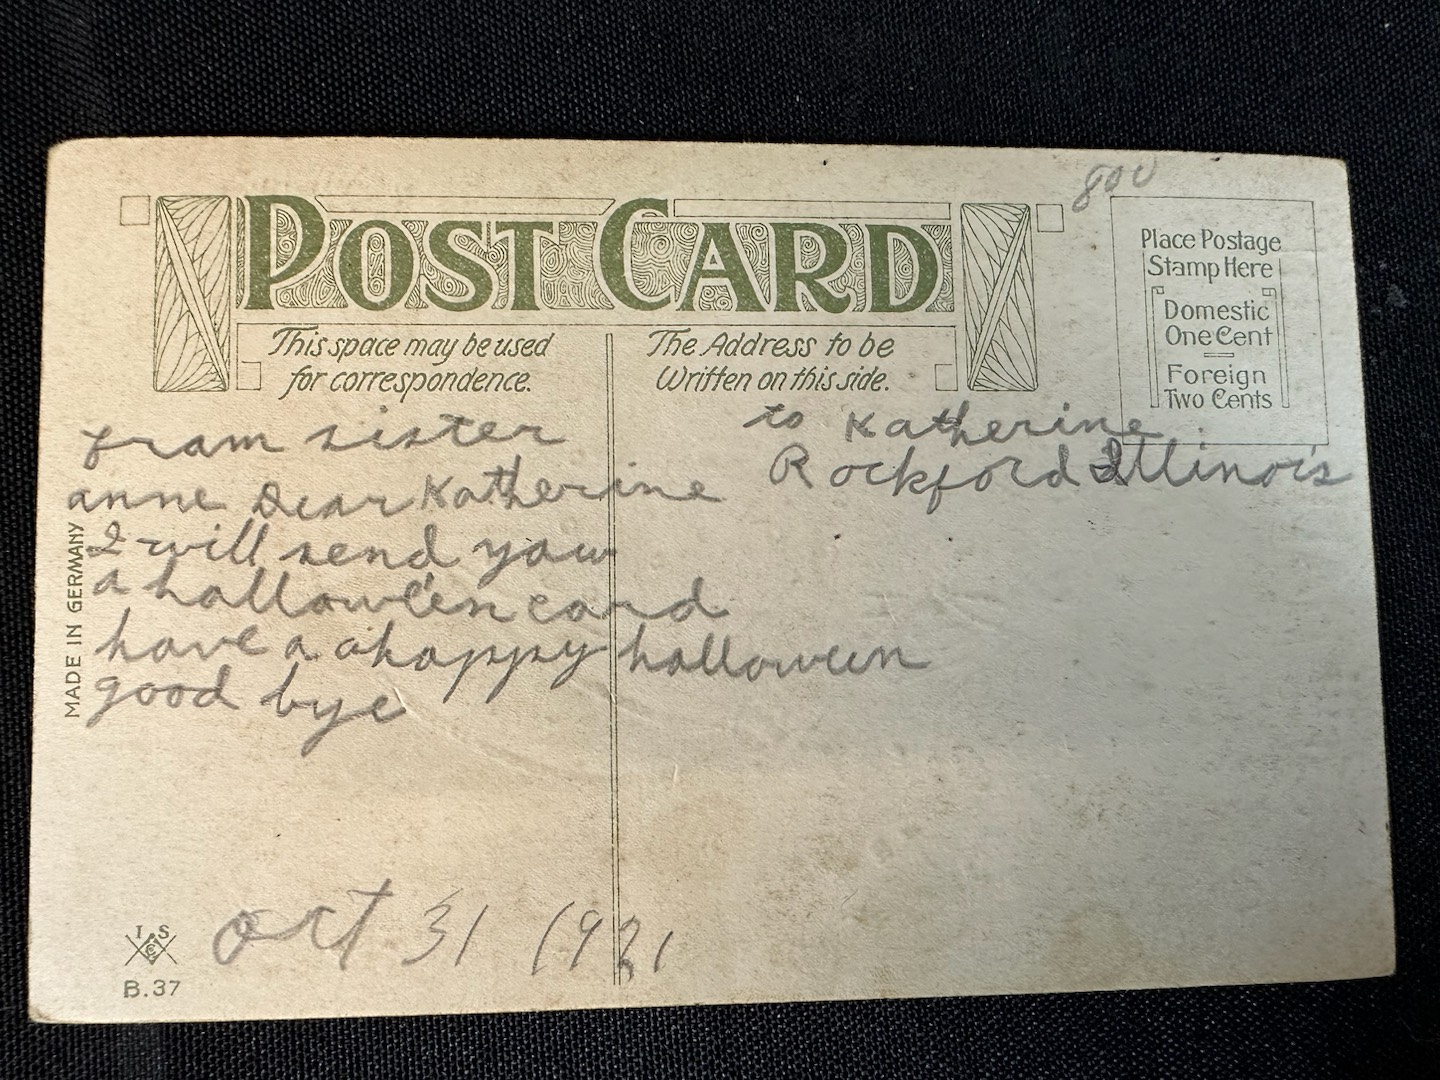 800
POST CARD
Place Postage
Stamp Here
Domestic
One Cent
Foreign
Two Cents
This space may be used
for correspondence.
The Address to be
Written on this side.
fram sister
anne Dear Katherine
I will send yow
a hallowe'en card
have a ahappy halloween
good bye
to Katherine
Rockford Illinois
MADE IN GERMANY
oct 31 1921
I S
B.37